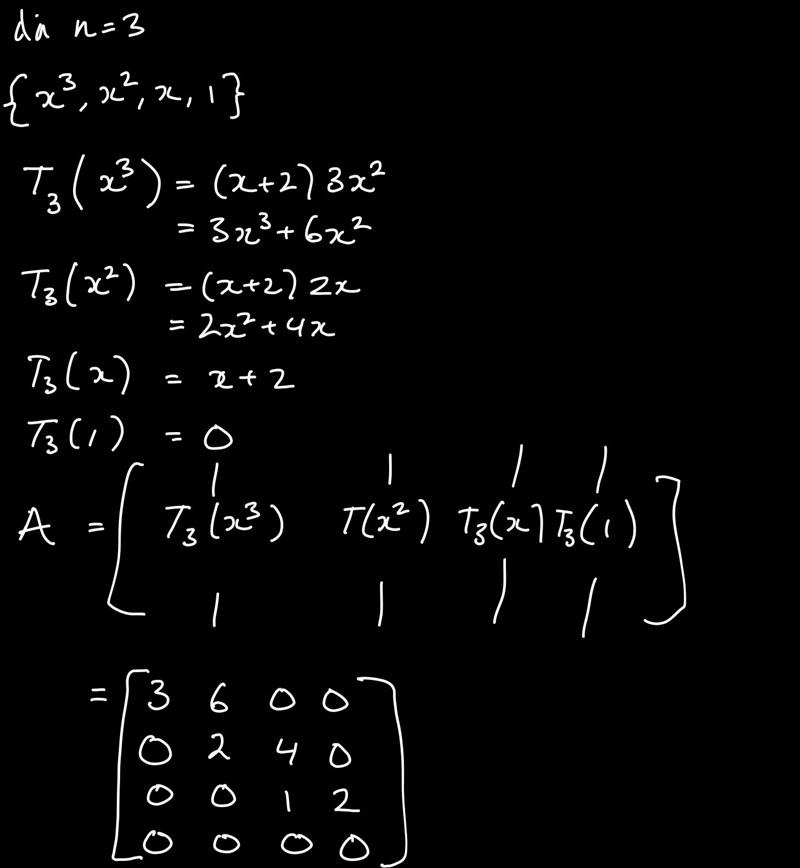 din n=3
{x³, x², x, 1}
T₃(x³) = (x+2) 3x²
= 3x³+6x²
T₃(x²) = (x+2) 2x
= 2x²+4x
T₃(x) = x+2
T₃(1) = 0
| | | |
A = [ T₃(x³) T(x²) T₃(x) T₃(1) ]
| | | |
= [ 3 6 0 0
0 2 4 0
0 0 1 2
0 0 0 0 ]